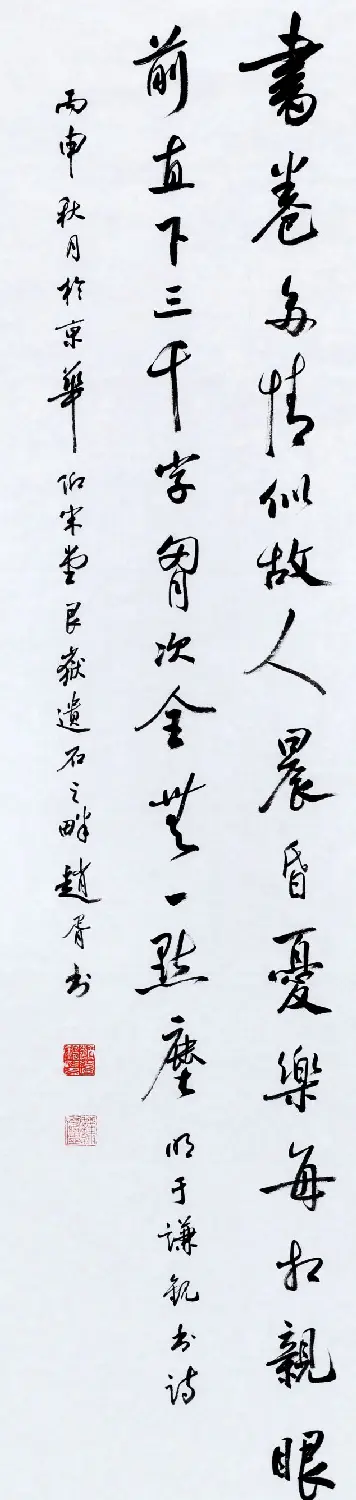 書卷多情似故人晨昏憂樂每相親眼
前直下三千字胷次全無一點塵 明于謙觀書詩
丙申秋月於京華仰米堂艮嶽遺石之畔趙胥書